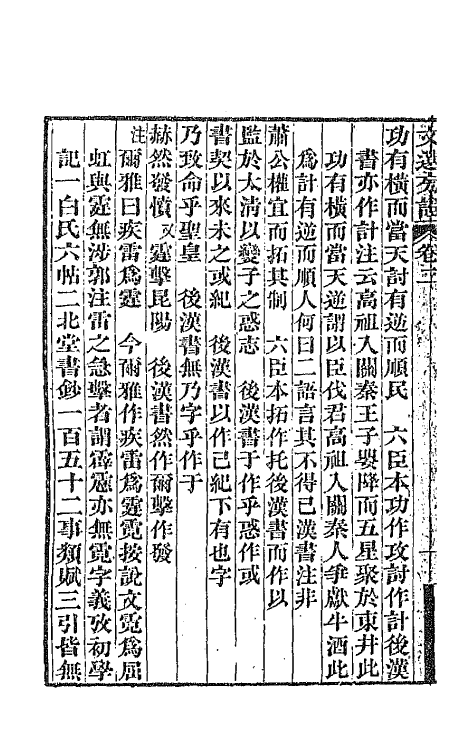 文選旁證 卷三
功有橫而當天討有逆而順民　六臣本功作攻討作計後漢
書亦作計注云高祖入關秦王子嬰降而五星聚於東井此
功有橫而當天逆謂以臣伐君高祖入關秦人爭獻牛酒此
爲計有逆而順人何曰二語言其不得已漢書注非
蕭公權宜而拓其制　六臣本拓作托後漢書而作以
監於太淸以變子之惑志　後漢書于作乎惑作或
書契以來未之或紀　後漢書以作已紀下有也字
乃致命乎聖皇　後漢書無乃字乎作于
赫然發憤　又霆擊昆陽　後漢書然作爾擊作發
注爾雅曰疾雷爲霆　今爾雅作疾雷爲霆霓按說文霓爲屈
虹與霆無涉郭注雷之急擊者謂霹靂亦無霓字義攷初學
記一白氏六帖二北堂書鈔一百五十二事類賦三引皆無